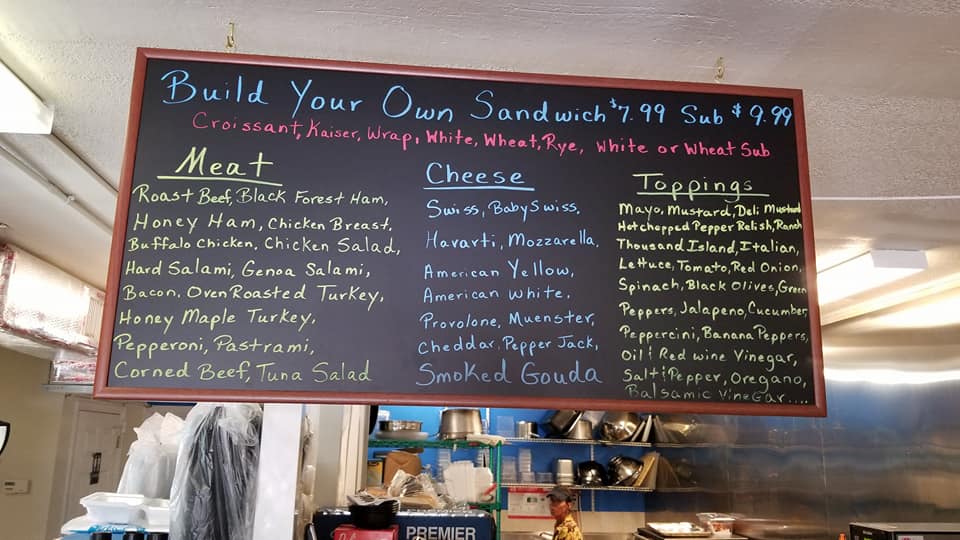 Build Your Own Sandwich $7.99 Sub $9.99
Croissant, Kaiser, Wrap, White, Wheat, Rye, White or Wheat Sub
Meat
Roast Beef, Black Forest Ham,
Honey Ham, Chicken Breast,
Buffalo Chicken, Chicken Salad,
Hard Salami, Genoa Salami,
Bacon, Oven Roasted Turkey,
Honey Maple Turkey,
Pepperoni, Pastrami,
Corned Beef, Tuna Salad
Cheese
Swiss, Baby Swiss,
Havarti, Mozzarella,
American Yellow,
American White,
Provolone, Muenster,
Cheddar, Pepper Jack,
Smoked Gouda
Toppings
Mayo, Mustard, Deli Mustard
Hot chopped Pepper Relish, Ranch
Thousand Island, Italian,
Lettuce, Tomato, Red Onion,
Spinach, Black Olives, Green
Peppers, Jalapeno, Cucumber
Peppercini, Banana Peppers,
Oil & Red wine Vinegar,
Salt & Pepper, Oregano,
Balsamic Vinegar....
PREMIER